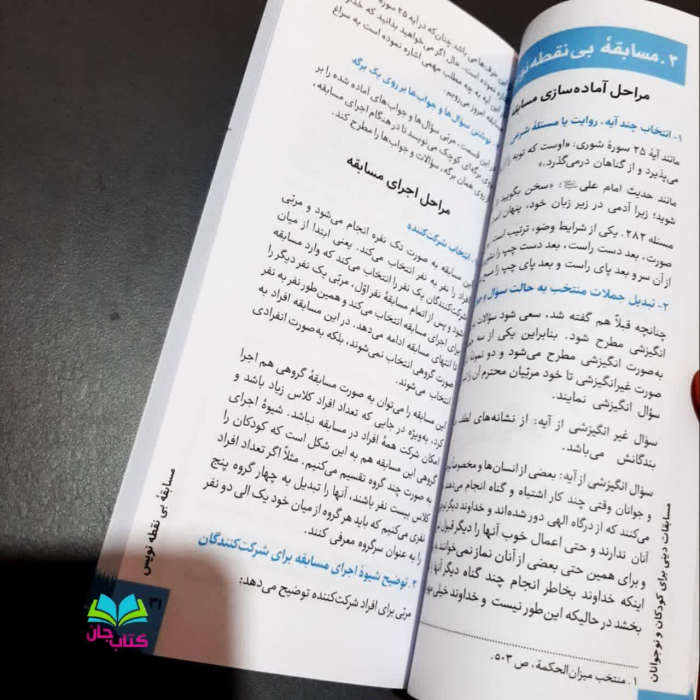 ۳. مسابقهٔ بی نقطه نو
مراحل آماده‌سازی مسابقه
۱- انتخاب چند آیه، روایت یا مسئلهٔ شرعی
مانند آیهٔ ۲۵ سورهٔ شوری: «اوست که توبه را
می‌پذیرد و از گناهان درمی‌گذرد.»
مانند حدیث امام علی: «سخن بگویید
شوید؛ زیرا آدمی در زیر زبان خود، پنهان است
مسئله ۲۸۲. یکی از شرایط وضو، ترتیب است
صورت، بعد دست راست، بعد دست چپ را
از آن سر و بعد پای راست و بعد پای چپ را
۲- تبدیل جملات منتخب به حالت سؤال و
چنانچه قبلاً هم گفته شد، سعی شود سؤالات
انگیزشی مطرح شود. بنابراین یکی از سه
به‌صورت انگیزشی مطرح می‌شود و دو نمونهٔ
صورت غیرانگیزشی تا خود مربّیان محترم آن را
سؤال انگیزشی نمایند.
سؤال غیر انگیزشی از آیه: از نشانه‌های لطف
بندگانش می‌باشد.
سؤال انگیزشی از آیه: بعضی از انسان‌ها و مخصوصاً
و جوانان وقتی چند کار اشتباه و گناه انجام می‌دهند
می‌کنند که از درگاه الهی دور شده‌اند و خداوند دیگر
آنان ندارند و حتی اعمال خوب آنها را دیگر قبول
و برای همین حتی بعضی از آنان نماز نمی‌خوانند
اینکه خداوند بخاطر انجام چند گناه دیگر آنها
بخشد در حالیکه این‌طور نیست و خداوند خیلی
۱. منتخب میزان‌الحکمة، ص ۵۰۳.
مسابقات دینی برای کودکان و نوجوانان
این حرف‌ها می باشد چنان‌که در آیه ۲۵ سوره
نموده است. حال اگر می خواهید بدانید که خداوند
این آیه به چه مطلب مهمی اشاره نموده است به سراغ
مسابقه امروز می‌رویم.
نوشتن سؤال‌ها و جواب‌ها بر روی یک برگه
در این قسمت، مربّی سؤال ها و جواب‌های آماده شده را بر
روی برگه‌ای کوچک می‌نویسد تا در هنگام اجرای مسابقه،
از روی همان برگه، سؤالات و جواب‌ها را مطرح کند.
مراحل اجرای مسابقه
انتخاب شرکت‌کننده
این مسابقه به صورت تک نفره انجام می‌شود و مربّی
افراد را نفر به نفر انتخاب می‌کند. یعنی ابتدا از میان
شرکت‌کنندگان یک نفر را انتخاب می‌کند که وارد مسابقه
شود و پس از اتمام مسابقهٔ نفر اوّل، مربّی یک نفر دیگر را
برای اجرای مسابقه انتخاب می‌کند و همین‌طور نفر به نفر
تا انتهای مسابقه ادامه می‌دهد. در این مسابقه افراد به
صورت گروهی انتخاب نمی‌شوند، بلکه به‌صورت انفرادی
انتخاب می‌شوند.
این مسابقه را می‌توان به صورت مسابقهٔ گروهی هم اجرا
کرد. به‌ویژه در جایی که تعداد افراد کلاس زیاد باشد و
امکان شرکت همهٔ افراد در مسابقه نباشد. شیوهٔ اجرای
گروهی این مسابقه هم به این شکل است که کودکان را
به صورت چند گروه تقسیم می‌کنیم. مثلاً اگر تعداد افراد
کلاس بیست نفر باشند، آنها را تبدیل به چهار گروه پنج
نفری می‌کنیم که باید هر گروه از میان خود یک الی دو نفر
را به عنوان سرگروه معرفی کنند.
۲. توضیح شیوهٔ اجرای مسابقه برای شرکت‌کنندگان
مربّی برای افراد شرکت‌کننده توضیح می‌دهد:
مسابقهٔ بی نقطه نویس
۳۱
کتاب جان